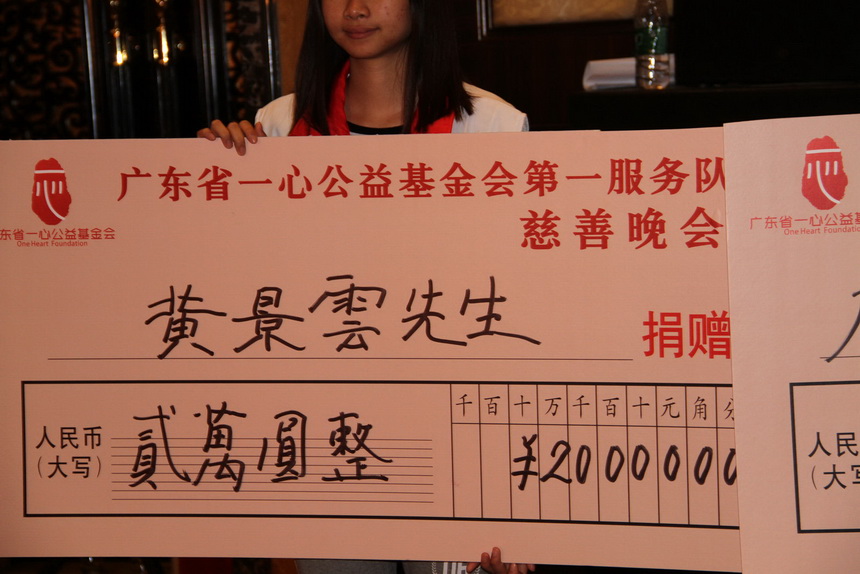 心
东省一心公益基金会
One Heart Foundation
广东省一心公益基金会第一服务队
慈善晚会
黄景雲先生
捐赠
人民币
(大写)
貳萬圓整
千百十万千百十元角分
¥2000000
心
广东省一心公益基
One Heart Foundatio
人民
(大写